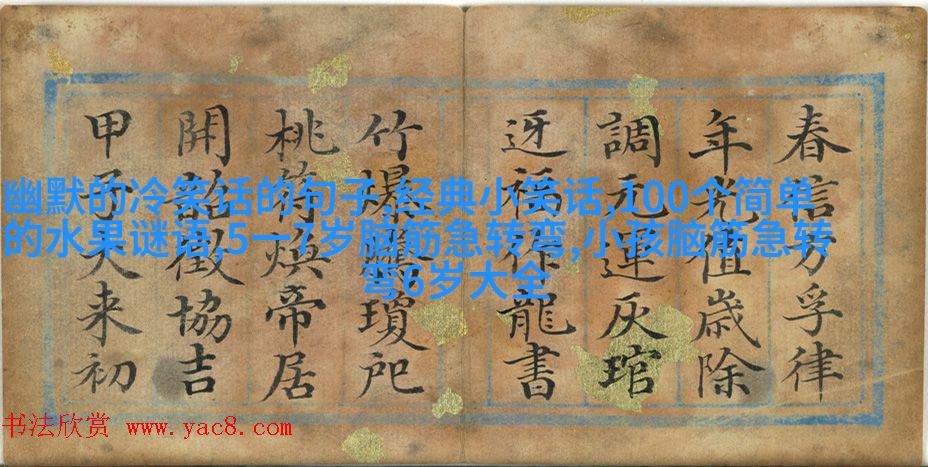 春信方孚律
年光值歲除
調元運灰琯
迓福作龍書
竹爆驚瓊
桃符煥帝居
開韶徵協吉
甲子来初
幽默的冷笑话的句子,经典小笑话,100个简单
的水果谜语,5一7岁脑筋急转弯,小孩脑筋急转
弯6岁大全
书法欣赏 www.yac8.com